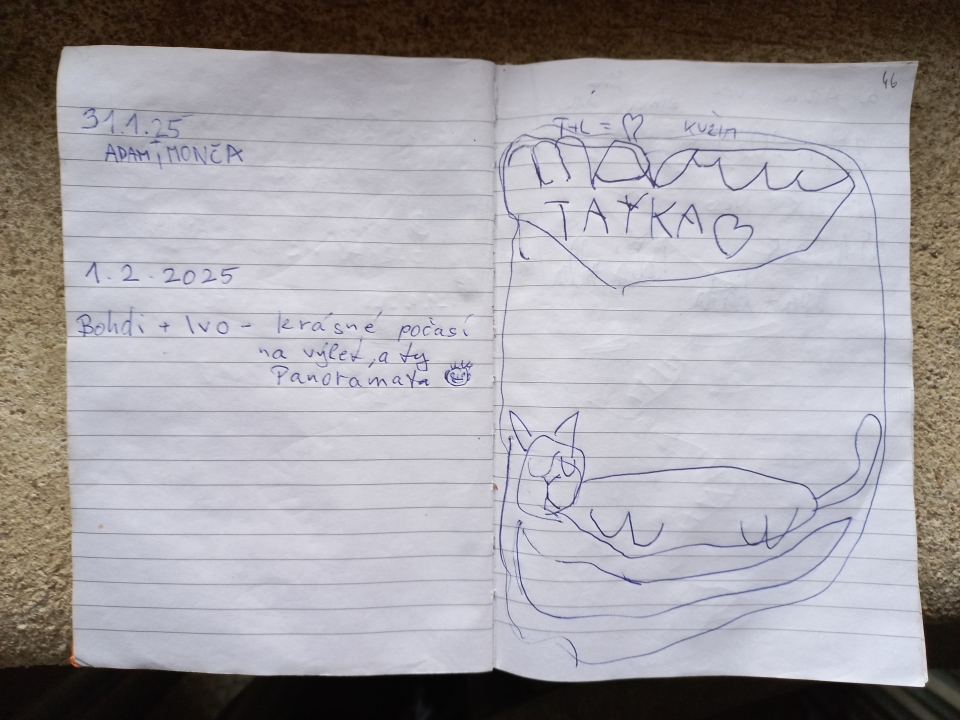 31.1.25
ADAM, MONČA
1.2.2025
Bohdi + Ivo - krásné počasí
na výlet, a ty
Panoramata
46
T+L = ♡ KUŽIM
TAŤKA ♡